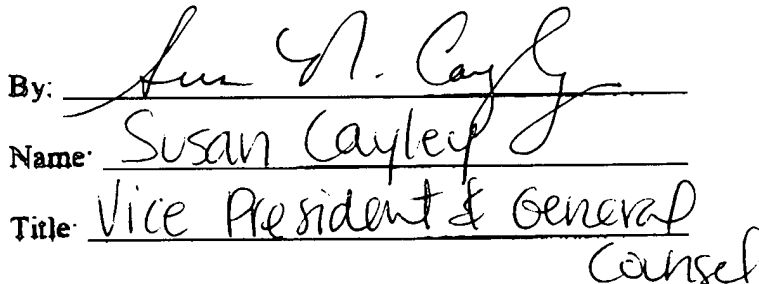 By: Susan N. Cayley
Name: Susan Cayley
Title: Vice President & General
Counsel